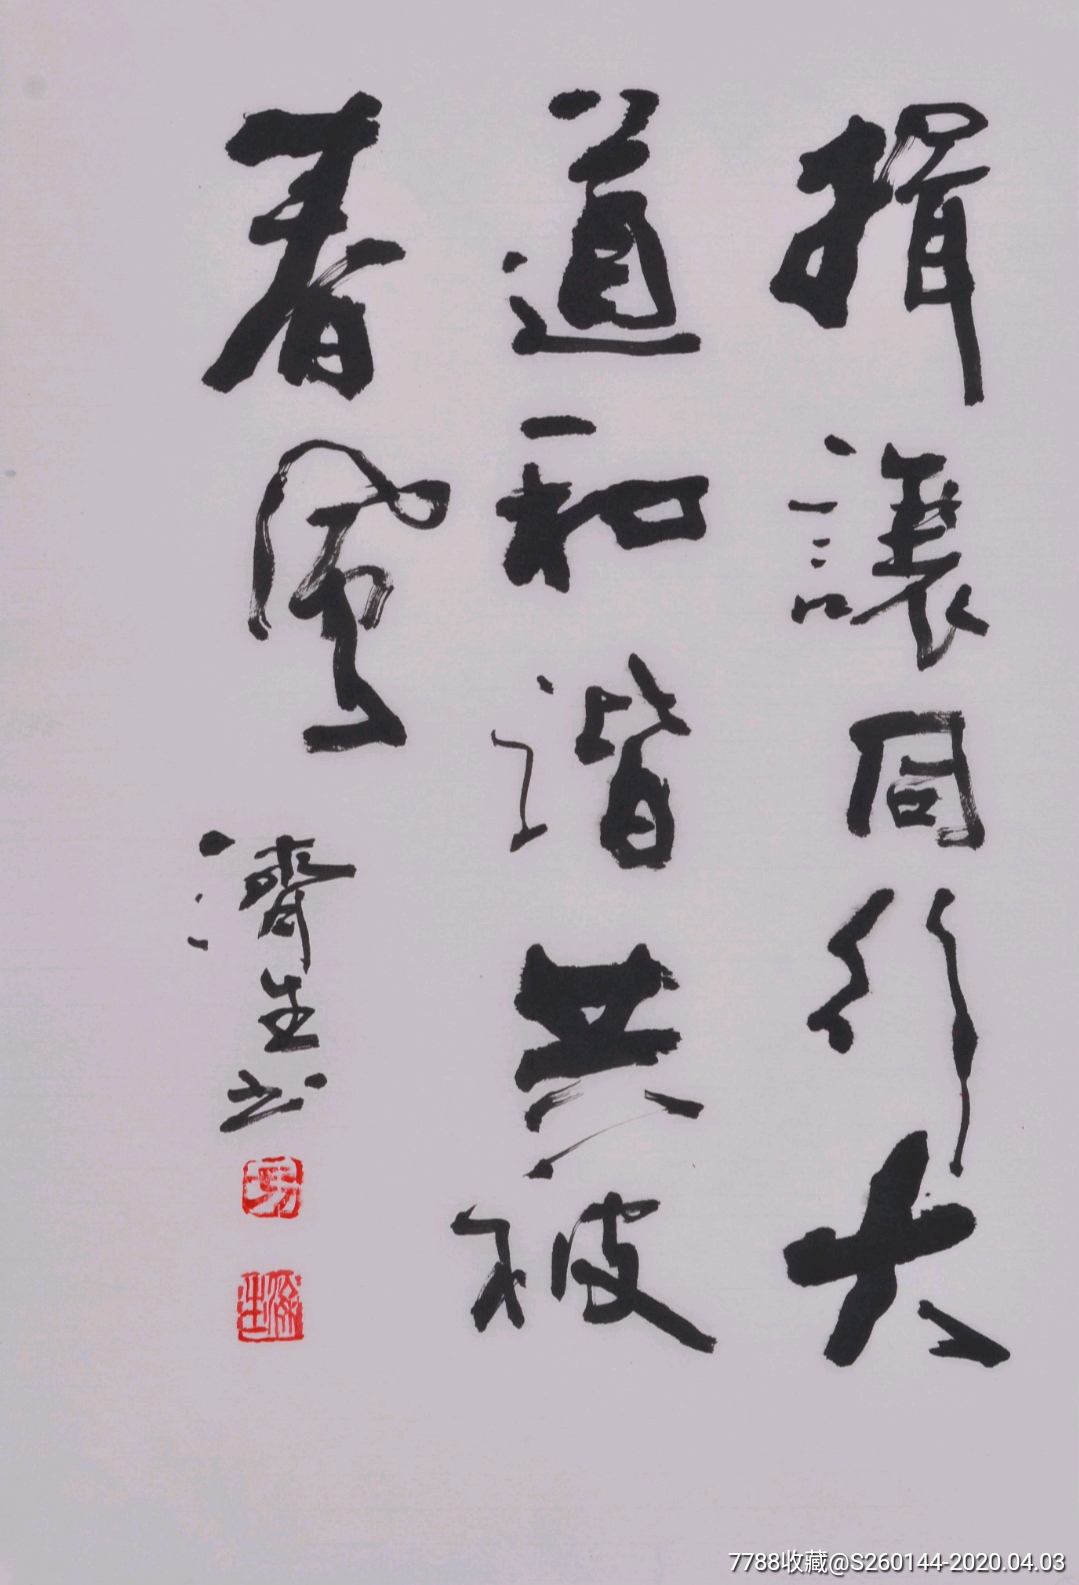 揖讓同行大
道和諧共被
春風
濟生书
濟生
7788收藏@S260144-2020.04.03